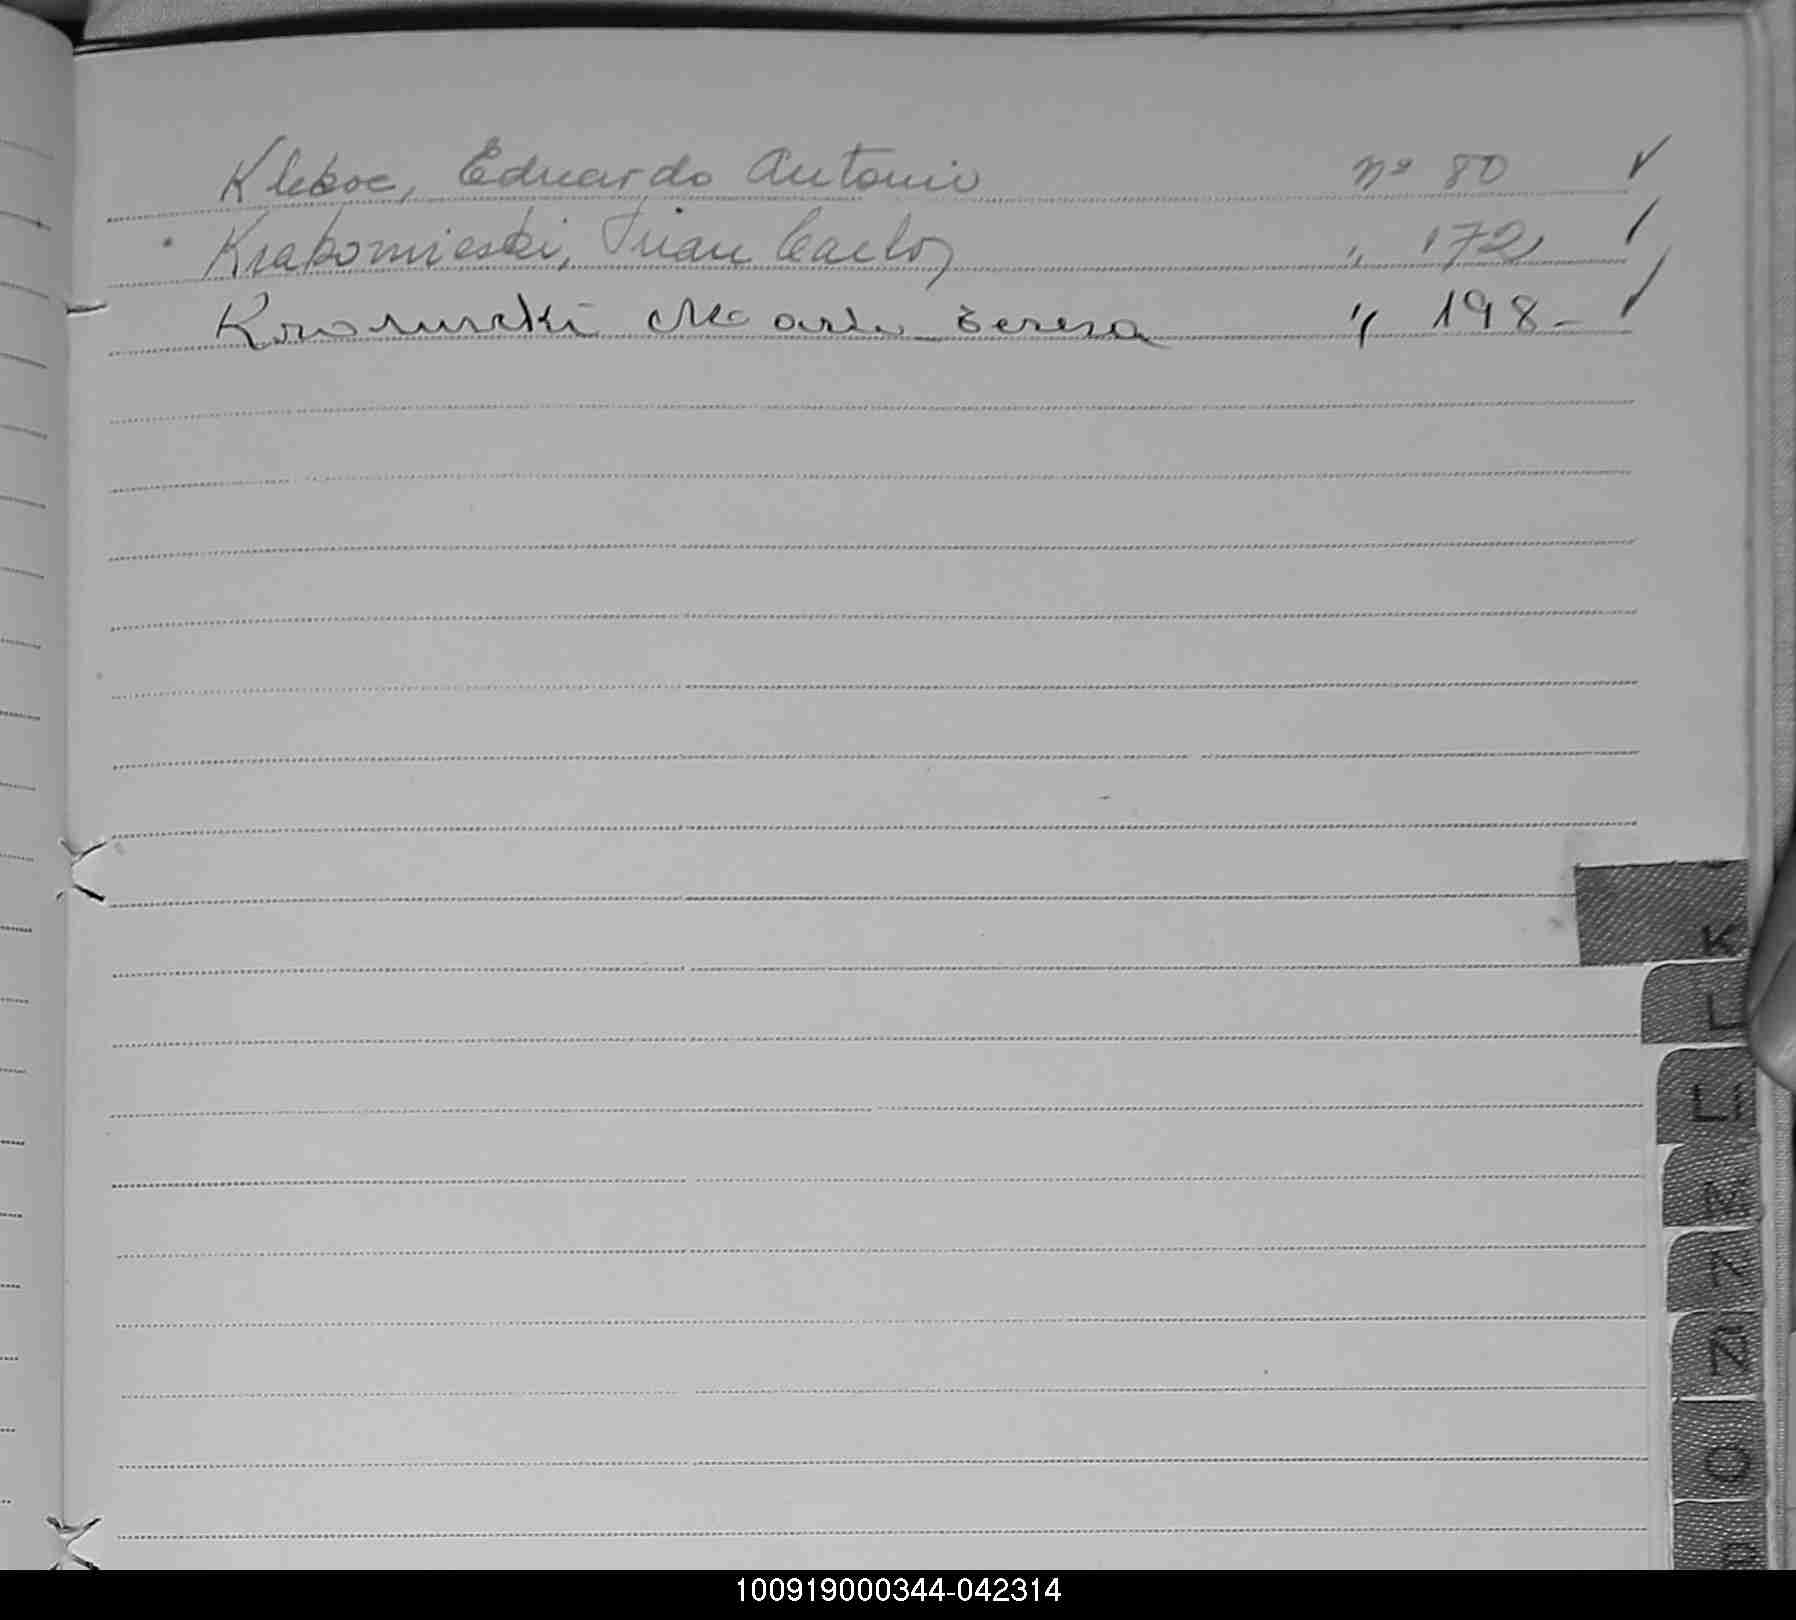 Klekoc, Eduardo Antonio nº 80 ✓
Krakomieski, Juan Carlos " 172 ✓
Maria Teresa " 198 - ✓
K
L
LL
M
N
Ñ
O
P
100919000344-042314